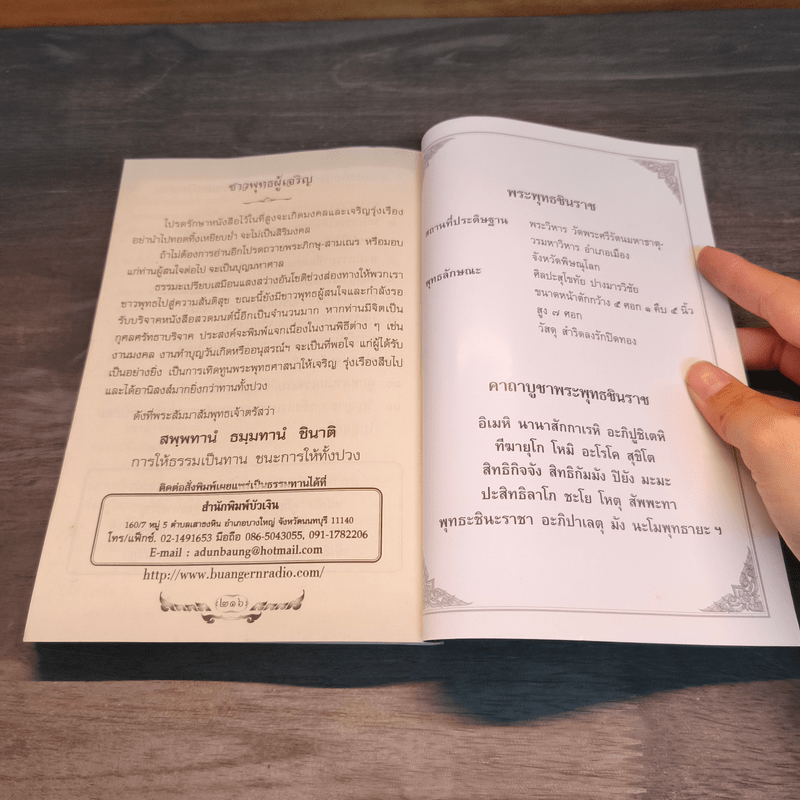 ชาวพุทธผู้เจริญ
โปรดรักษาหนังสือไว้ในที่สูงจะเกิดมงคลและเจริญรุ่งเรือง
อย่านำไปทอดทิ้งเหยียบย่ำ จะไม่เป็นสิริมงคล
ถ้าไม่ต้องการอ่านอีกโปรดถวายพระภิกษุ-สามเณร หรือมอบ
แก่ท่านผู้สนใจต่อไป จะเป็นบุญมหาศาล
ธรรมะเปรียบเสมือนแสงสว่างอันโชติช่วงส่องทางให้พวกเรา
ชาวพุทธไปสู่ความสันติสุข ขณะนี้ยังมีชาวพุทธผู้สนใจและกำลังรอ
รับบริจาคหนังสือสวดมนต์นี้อีกเป็นจำนวนมาก หากท่านมีจิตเป็น
กุศลศรัทธาบริจาค ประสงค์จะพิมพ์แจกเนื่องในงานพิธีต่าง ๆ เช่น
งานมงคล งานทำบุญวันเกิดหรืออนุสรณ์ฯ จะเป็นที่พอใจ แก่ผู้ได้รับ
เป็นอย่างยิ่ง เป็นการเทิดทูนพระพุทธศาสนาให้เจริญ รุ่งเรืองสืบไป
และได้อานิสงส์มากยิ่งกว่าทานทั้งปวง
ดังที่พระสัมมาสัมพุทธเจ้าตรัสว่า
สพฺพทานํ ธมฺมทานํ ชินาติ
การให้ธรรมเป็นทาน ชนะการให้ทั้งปวง
ติดต่อสั่งพิมพ์เผยแพร่เป็นธรรมทานได้ที่
สำนักพิมพ์บัวเงิน
160/7 หมู่ 5 ตำบลเสาธงหิน อำเภอบางใหญ่ จังหวัดนนทบุรี 11140
โทร/แฟ็กซ์. 02-1491653 มือถือ 086-5043055, 091-1782206
E-mail : adunbaung@hotmail.com
http://www.buangernradio.com/
๒๑๖
พระพุทธชินราช
สถานที่ประดิษฐาน พระวิหาร วัดพระศรีรัตนมหาธาตุ-
วรมหาวิหาร อำเภอเมือง
จังหวัดพิษณุโลก
พุทธลักษณะ ศิลปะสุโขทัย ปางมารวิชัย
ขนาดหน้าตักกว้าง ๕ ศอก ๑ คืบ ๕ นิ้ว
สูง ๗ ศอก
วัสดุ สำริดลงรักปิดทอง
คาถาบูชาพระพุทธชินราช
อิเมหิ นานาสักกาเรหิ อะภิปูชิเตหิ
ทีฆายุโก โหมิ อะโรโค สุขิโต
สิทธิกิจจัง สิทธิกัมมัง ปิยัง มะมะ
ปะสิทธิลาโภ ชะโย โหตุ สัพพะทา
พุทธะชินะราชา อะภิปาเลตุ มัง นะโมพุทธายะ ฯ